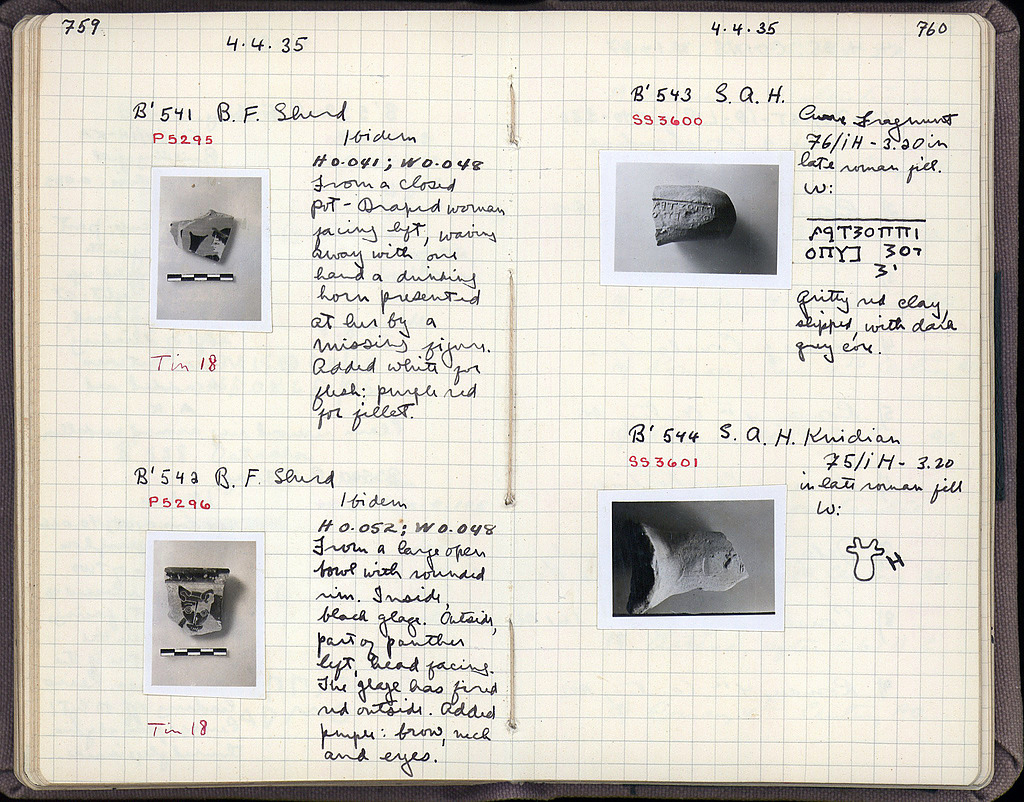 759
4.4.35
B' 541 B. F. Sherd
P5295
Ibidem
H 0.041; W 0.048
From a closed
pot - Draped woman
facing left, waving
away with one
hand a drinking
horn presented
at her by a
missing figure.
Added white for
flesh: purple red
for fillet.
Tin 18
B' 542 B. F. Sherd
P5296
Ibidem
H 0.052; W 0.048
From a large open
bowl with rounded
rim. Inside,
black glaze. Outside,
part of panther
left, head facing.
The glaze has fired
red outside. Added
purple: brow, neck
and eyes.
Tin 18
4.4.35
760
B' 543 S. A. H.
SS3600
fragment
76/ΙΗ - 3.20 in
late roman fill.
W:
Gritty red clay,
slipped, with dark
grey core.
B' 544 S. A. H. Knidian
SS3601
75/ΙΗ - 3.20
in late roman fill
W:
H